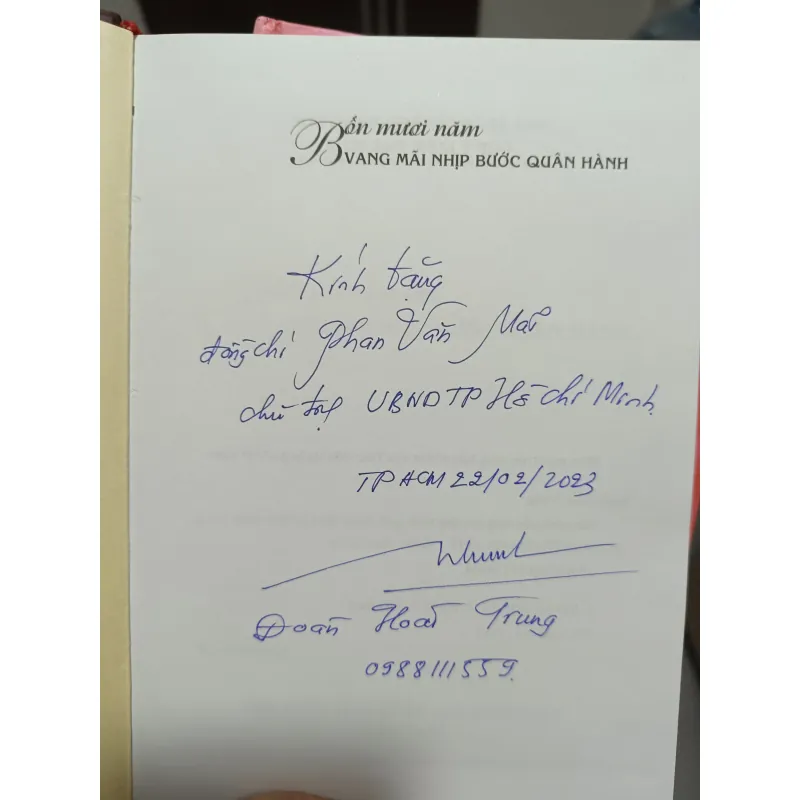 Bốn mươi năm
VANG MÃI NHỊP BƯỚC QUÂN HÀNH
Kính tặng
đồng chí Phan Văn Mãi
chủ tịch UBNDTP Hồ Chí Minh
TP HCM 22/02/2023
Đoàn Hoài Trung
0988111559.